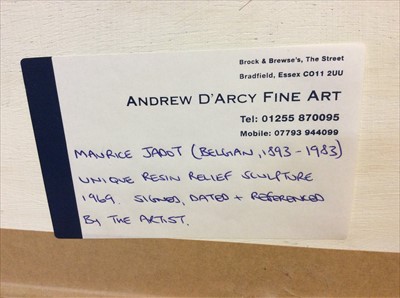 Brock & Brewse's, The Street
Bradfield, Essex CO11 2UU
ANDREW D'ARCY FINE ART
Tel: 01255 870095
Mobile: 07793 944099
MAURICE JADOT (BELGIAN, 1893 - 1983)
UNIQUE RESIN RELIEF SCULPTURE
1969. SIGNED, DATED + REFERENCED
BY THE ARTIST.